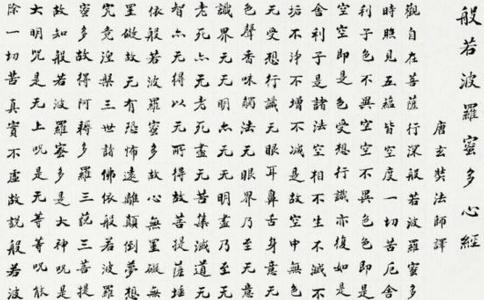 般若波羅蜜多心經
唐玄奘法師譯
觀自在菩薩行深般若波羅蜜多
時照見五蘊皆空度一切苦厄舍
利子色不異空空不異色色即是
空空即是色受想行識亦復如是
舍利子是諸法空相不生不滅不
垢不淨不增不減是故空中無色
无受想行識无眼耳鼻舌身意无
色聲香味觸法无眼界乃至无意
識界无无明亦无无明盡乃至无
老死亦无老死盡无苦集滅道无
智亦无得以无所得故菩提薩埵
依般若波羅蜜多故心無罣礙無
罣礙故无有恐怖遠離顛倒夢想
究竟涅槃三世諸佛依般若波羅
蜜多故得阿耨多羅三藐三菩提
故知般若波羅蜜多是大神咒是
大明咒是无上咒是无等等咒能
除一切苦真實不虛故說般若波